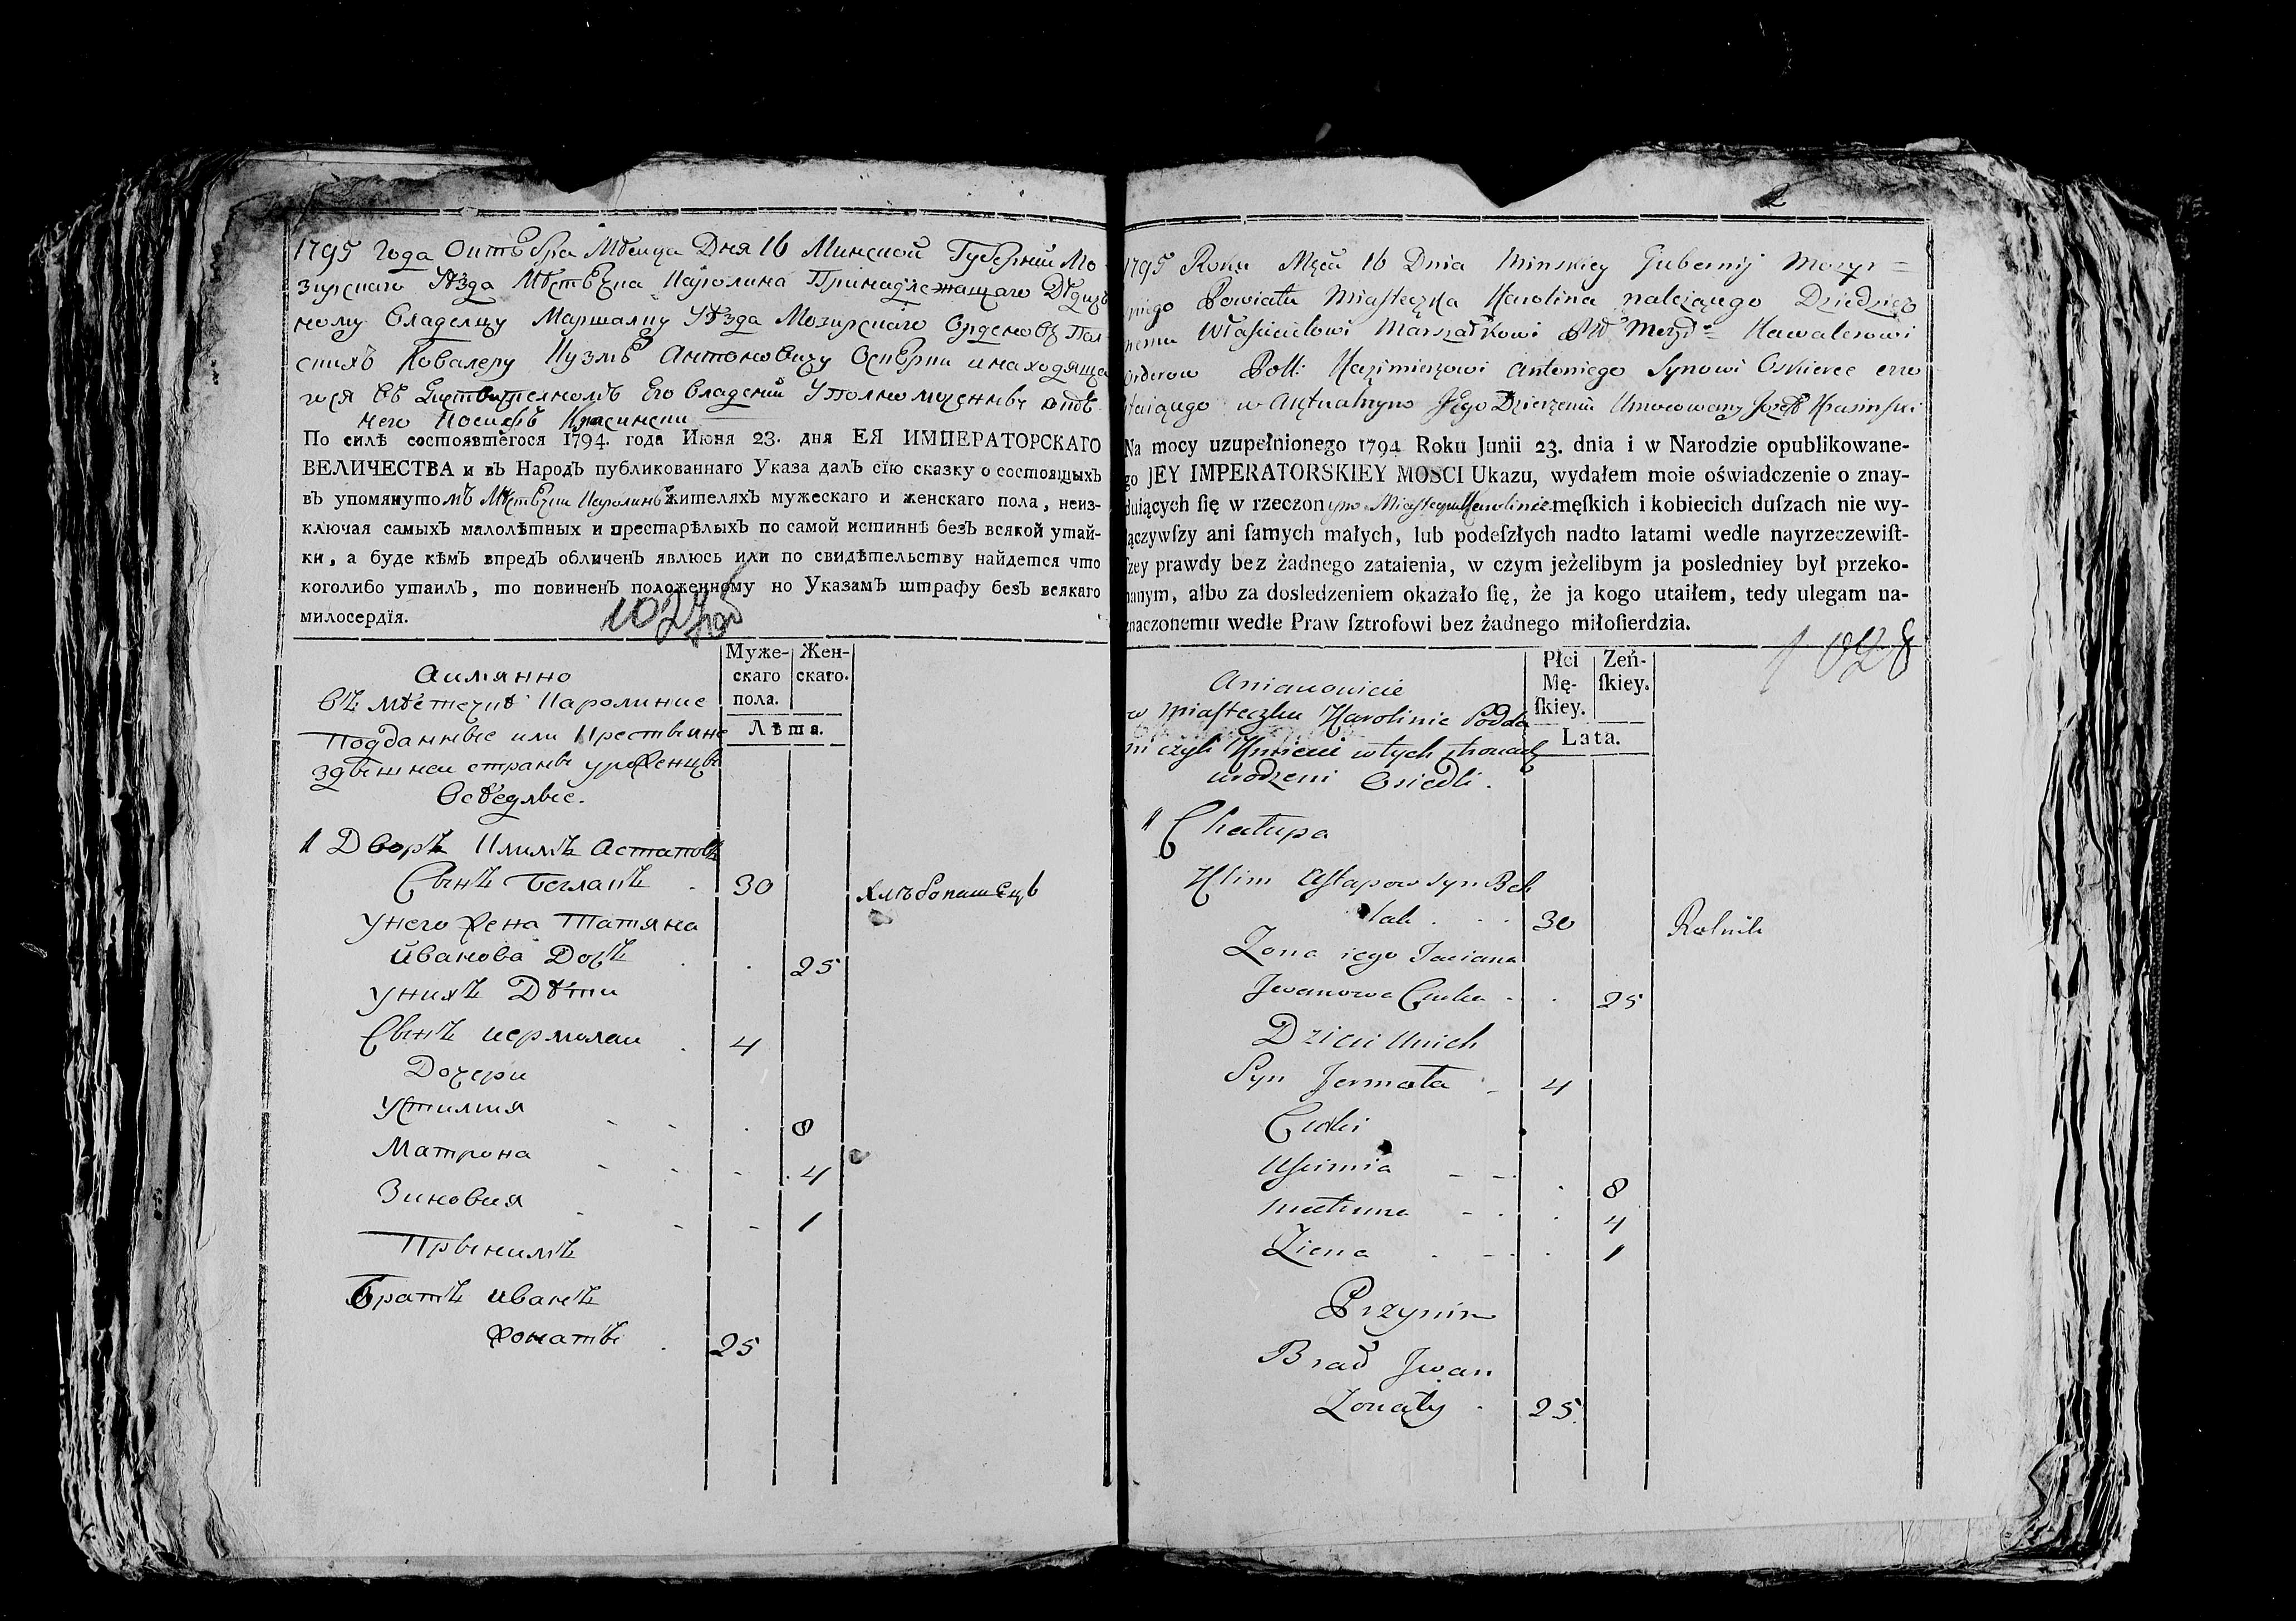 1795 Года Октебра Мѣсица Дня 16 Минской Губернии Мо-
зирскаго Уѣзда Мѣстѣчка Каролина Принадлежащаго Дѣдизч
ному Владелцу Маршалку Уѣзда Мозирскаго Орденовъ Пол-
скихъ Ковалеру Кузмѣ Антоновичу Оскерки инаходяща
гося въ Его владении Уполномоченны отъ
него Иосифъ Красински
По силѣ состоявшегося 1794. года Июня 23. дня ЕЯ ИМПЕРАТОРСКАГО
ВЕЛИЧЕСТВА и въ Народъ публикованнаго Указа далъ сїю сказку о состоящыхъ
въ упомянутомъ Мѣстѣчки Каролинѣ жителяхъ мужескаго и женскаго пола, неиз-
ключая самыхъ малолѣтныхъ и престарѣлыхъ по самой истиннѣ безъ всякой утай-
ки, а буде кѣмъ впредъ обличенъ явлюсь или по свидѣтельству найдется что
коголибо утаилъ, то повиненъ положенному но Указамъ штрафу безъ всякаго
милосердїя.
Муже-
скаго
пола.
Жен-
скаго.
Лѣта.
Аимянно
въ мѣстечкѣ Каролиние
Подданные или Крестьяне
здѣшнеи страны уроженцы
Осѣдлые.
1 Дворъ Климъ Астаповъ
Сынъ Беглакъ . 30 хлѣбопашецъ
унего жена Татяна
Иванова Дочь . . 25
унихъ Дѣти
Сынъ иермолаи . 4
Дочери
Устимия - - . 8
Матрона - - - . 4
Зиновия - - - 1
Прыкимъ
Братъ иванъ
жонаты . 25
2
1795 Roku Mẹca 16 Dnia Minskiey Gubernij Mozyr=
skiego Powiatu Miasteczka Karolina należącego Dziedzicz
nemu Właścicielowi Marszałkowi Mozyr= Kawalerowi
Orderow Polł: Kazimierzowi Antoniego Synowi Oskierce
w Aktualnym Jego Dzierżeniu Umocowany Jozeff Krasinski
Na mocy uzupełnionego 1794 Roku Junii 23. dnia i w Narodzie opublikowane-
go JEY IMPERATORSKIEY MOSCI Ukazu, wydałem moie oświadczenie o znay-
duiących ſię w rzeczonym Miasteczku Karolinie męſkich i kobiecich duſzach nie wy-
łączywſzy ani ſamych małych, lub podeſzłych nadto latami wedle nayrzeczewiſt-
ſzey prawdy bez żadnego zataienia, w czym jeżelibym ja posledniey był przeko-
nanym, albo za dosledzeniem okazało ſię, że ja kogo utaiłem, tedy ulegam na-
znaczonemu wedle Praw ſztrofowi bez żadnego miłoſierdzia.
1028
Płci
Mę-
ſkiey.
Zeń-
ſkiey.
Lata.
Anianowicie
w Miasteczku Karolinie Podda
ni czyli Kmiecie wtych stronach
urodzeni Osiedli.
1 Chałupa
Klim Astapow syn Beh
lak . . . 30 Rolnik
Zona iego Taciana
Jwanowa Curka . . 25
Dzieci unich
Syn Jermoła - 4
Curki
Uscimia - - . 8
Matruna - . . 4
Ziena . - - . 1
Przynim
Brat Jwan
Zonaty . 25.